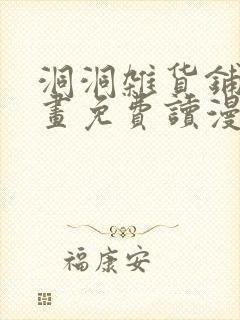 洞洞雜貨鋪
畫免費讀漫
福康安